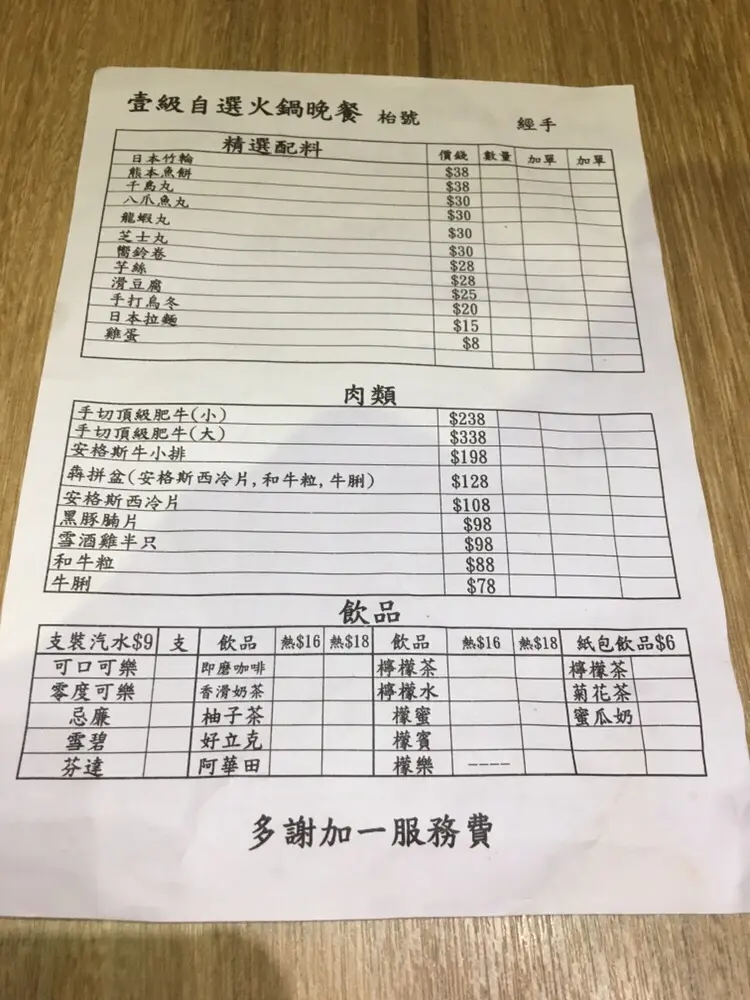 壹級自選火鍋晚餐 枱號 經手
精選配料 價錢 數量 加單 加單
日本竹輪 $38
熊本魚餅 $38
千島丸 $30
八爪魚丸 $30
龍蝦丸 $30
芝士丸 $30
嚮鈴卷 $28
芋絲 $28
滑豆腐 $25
手打烏冬 $20
日本拉麵 $15
雞蛋 $8
肉類
手切頂級肥牛(小) $238
手切頂級肥牛(大) $338
安格斯牛小排 $198
犇拼盆(安格斯西冷片,和牛粒,牛脷) $128
安格斯西冷片 $108
黑豚腩片 $98
雪酒雞半只 $98
和牛粒 $88
牛脷 $78
飲品
支裝汽水$9 支 飲品 熱$16 熱$18 飲品 熱$16 熱$18 紙包飲品$6
可口可樂 即磨咖啡 檸檬茶 檸檬茶
零度可樂 香滑奶茶 檸檬水 菊花茶
忌廉 柚子茶 檬蜜 蜜瓜奶
雪碧 好立克 檬賓
芬達 阿華田 檬樂 ----
多謝加一服務費